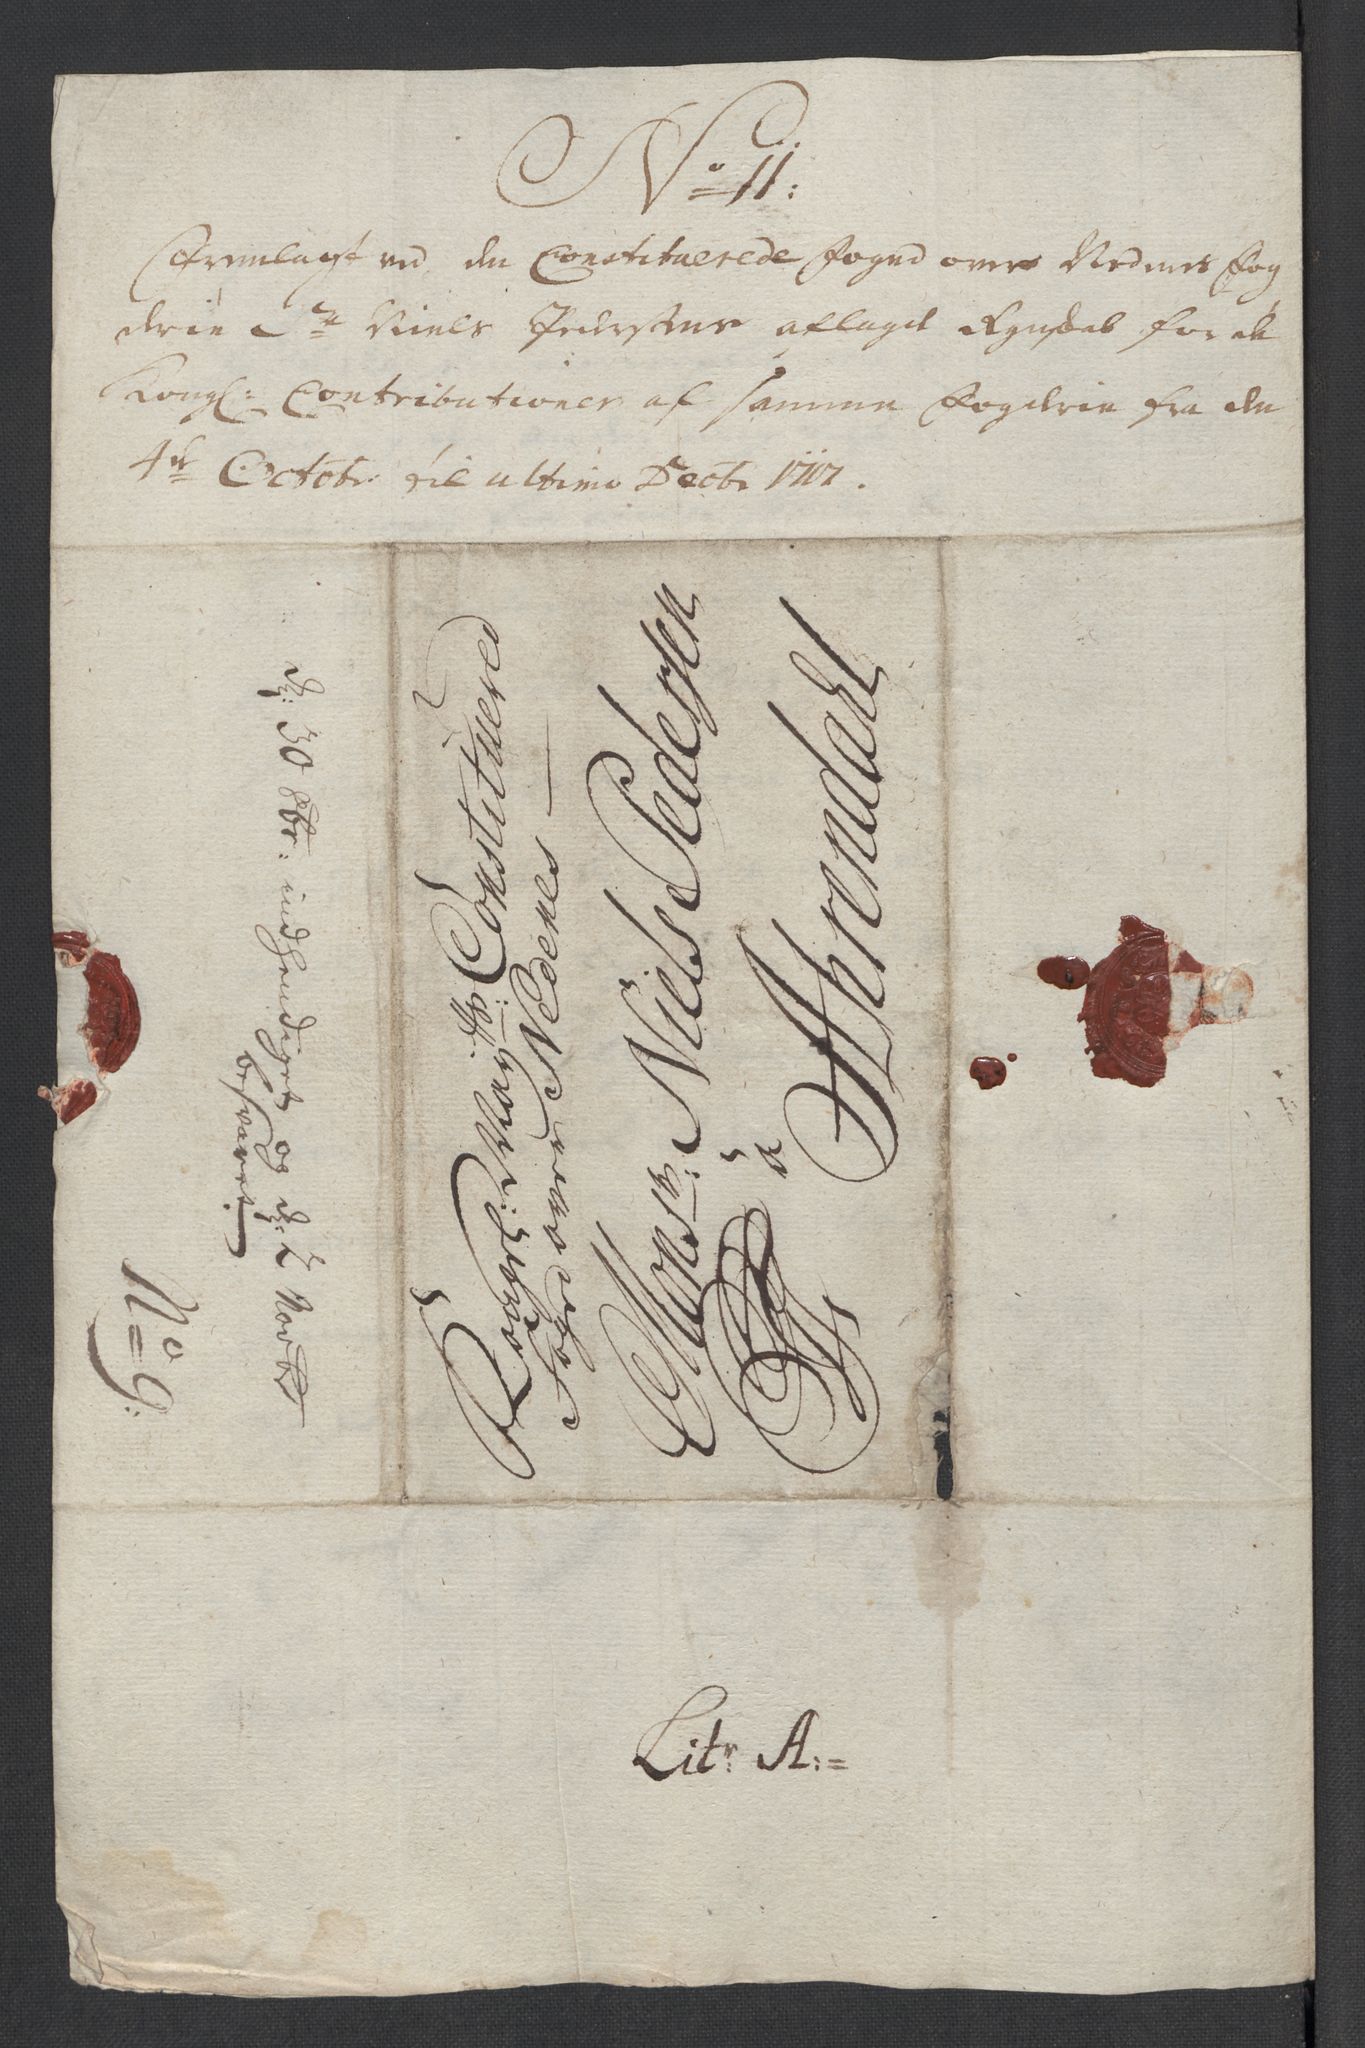 No 11:
Fremlagt ved den Constituerede foged over Nedenes fog
derie Sr Niels Pedersens aflagde Regnskab for de
Kongl: Contributioner af samme fogderie fra den
4de Octobr: til ultimo Decbr 1717.
Kongl: May:ts Constituered
foged over Nedenes
Monsr: Niels Pedersen
à
Ahrendahl
d: 30 8br: indhendiget og d: 2 Novbr
besvaret.
No 9:
Litr A:=